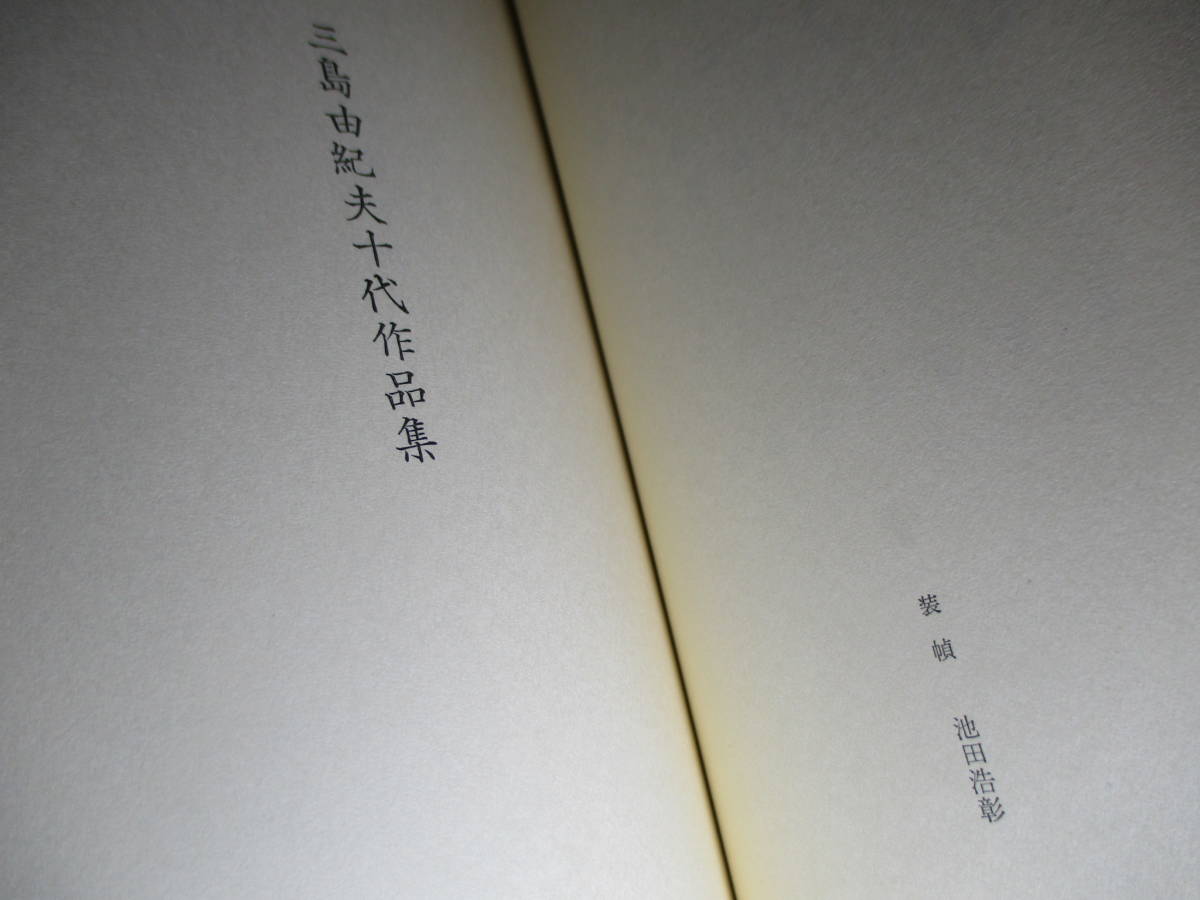 装幀 池田浩彰
三島由紀夫十代作品集